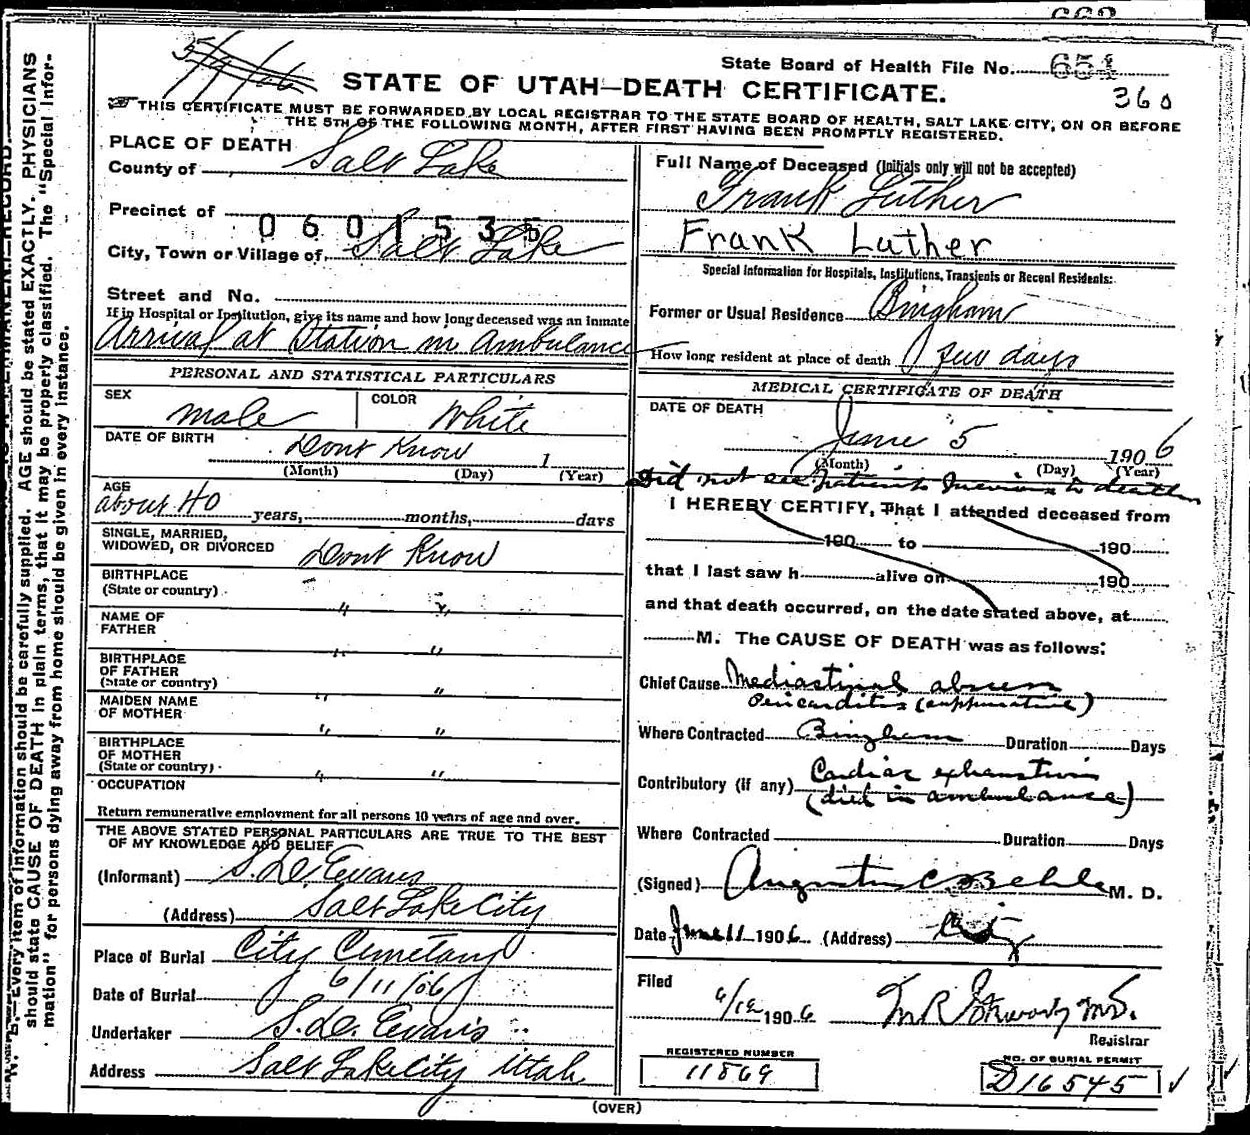 State Board of Health File No. 651
360
5/9/06
STATE OF UTAH—DEATH CERTIFICATE.
THIS CERTIFICATE MUST BE FORWARDED BY LOCAL REGISTRAR TO THE STATE BOARD OF HEALTH, SALT LAKE CITY, ON OR BEFORE
THE 5TH OF THE FOLLOWING MONTH, AFTER FIRST HAVING BEEN PROMPTLY REGISTERED.
PLACE OF DEATH
County of Salt Lake
Precinct of
0601535
City, Town or Village of Salt Lake
Street and No.
If in Hospital or Institution, give its name and how long deceased was an inmate
Arrival at Station in Ambulance
PERSONAL AND STATISTICAL PARTICULARS
SEX male COLOR White
DATE OF BIRTH Dont Know 1
(Month) (Day) (Year)
AGE
about 40 years, months, days
SINGLE, MARRIED,
WIDOWED, OR DIVORCED Dont Know
BIRTHPLACE
(State or country) " "
NAME OF
FATHER " "
BIRTHPLACE
OF FATHER
(State or country) " "
MAIDEN NAME
OF MOTHER " "
BIRTHPLACE
OF MOTHER
(State or country) " "
OCCUPATION
Return remunerative employment for all persons 10 years of age and over.
THE ABOVE STATED PERSONAL PARTICULARS ARE TRUE TO THE BEST
OF MY KNOWLEDGE AND BELIEF
(Informant) S. D. Evans
(Address) Salt Lake City
Place of Burial City Cemetary
Date of Burial 6/11/06
Undertaker S. D. Evans
Address Salt Lake City Utah
Full Name of Deceased (Initials only will not be accepted)
Frank Luther
Frank Luther
Special Information for Hospitals, Institutions, Transients or Recent Residents:
Former or Usual Residence Bingham
How long resident at place of death few days
MEDICAL CERTIFICATE OF DEATH
DATE OF DEATH
June 5 1906
(Month) (Day) (Year)
Did not see patient previous to death
I HEREBY CERTIFY, That I attended deceased from
190 to 190
that I last saw h alive on 190
and that death occurred, on the date stated above, at
M. The CAUSE OF DEATH was as follows:
Chief Cause Mediastinal abscess
Pericarditis (suppurative)
Where Contracted Bingham Duration Days
Contributory (if any) Cardiac exhaustion
(died in ambulance)
Where Contracted Duration Days
(Signed) Augustus C Behle M. D.
Date June 11 1906 (Address) City
Filed
6/12 1906 M.D.
Registrar
REGISTERED NUMBER
11869
NO. OF BURIAL PERMIT
D16545
(OVER)
N. B.—Every item of information should be carefully supplied. AGE should be stated EXACTLY. PHYSICIANS
should state CAUSE OF DEATH in plain terms, that it may be properly classified. The "Special Infor-
mation" for persons dying away from home should be given in every instance.